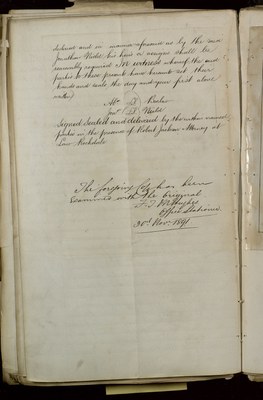 declared and in manner aforesaid as by the said
Jonathan his heirs or assigns shall be
reasonably required In witness whereof the said
parties to these presents have hereunto set their
hands and seals the day and year first above
written
Signed Sealed and delivered by the within named
parties in the presence of Robert Jackson Attorney at
Law Rochdale
The foregoing Copy has been
Examined with the Original
Office Stationer
30th Nov. 1891